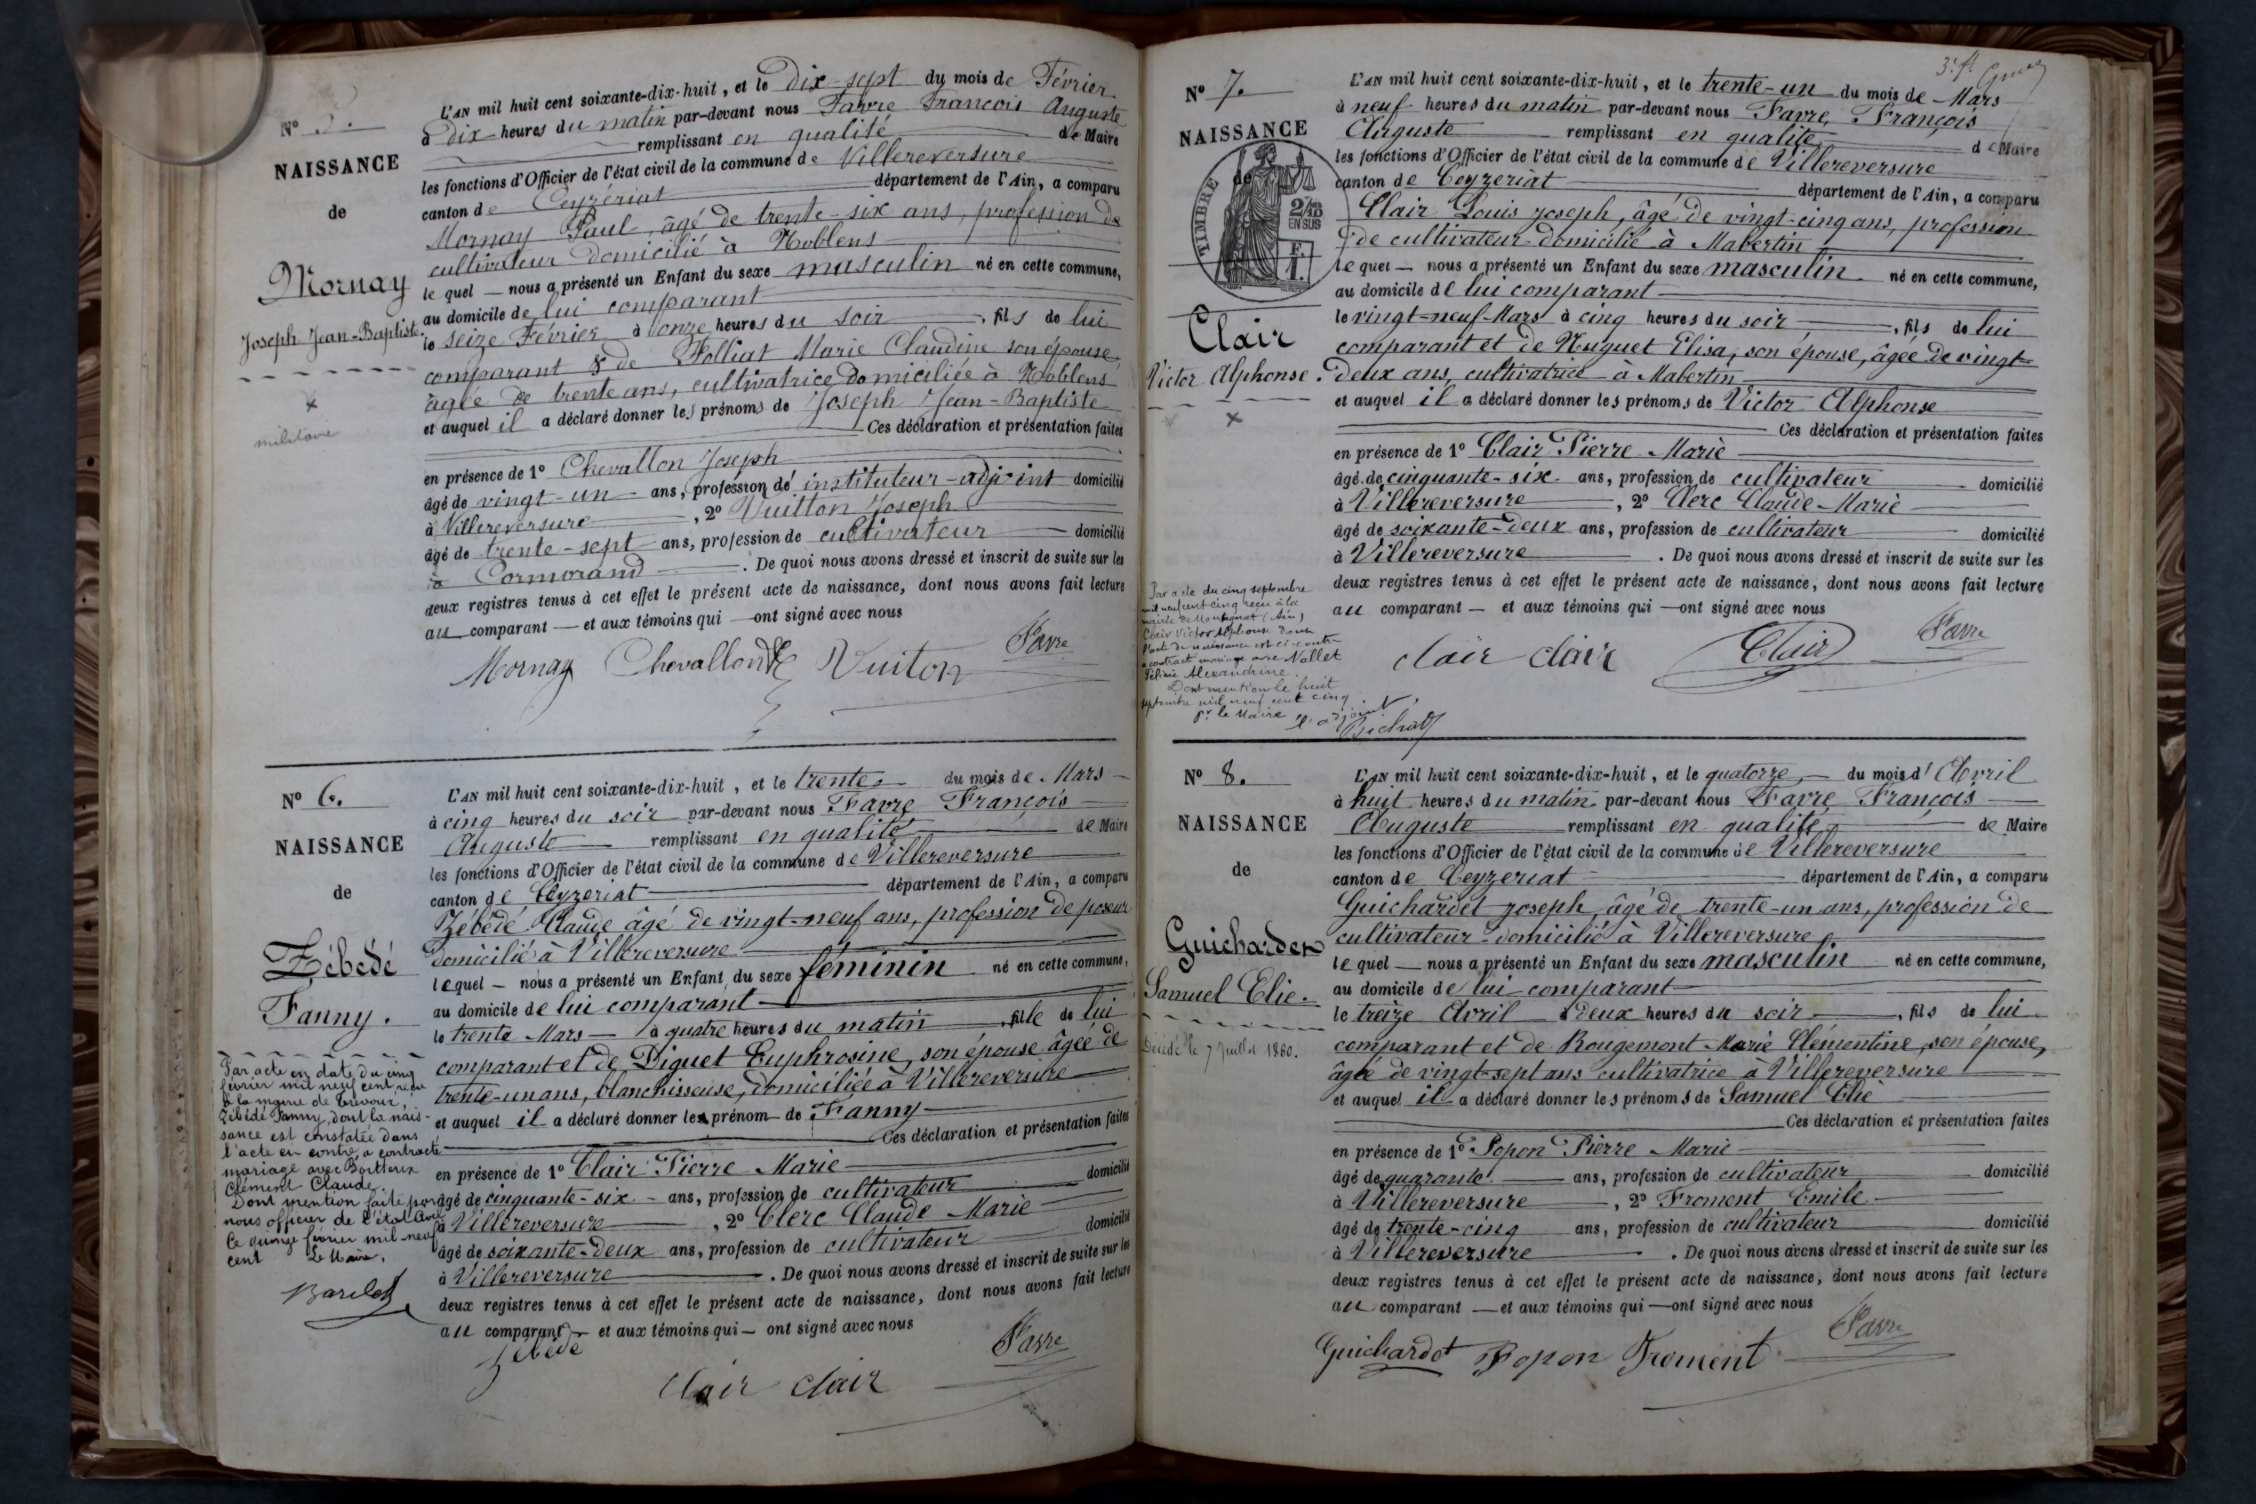 Nº 5.
NAISSANCE
de
Mornay
Joseph Jean-Baptiste.
militaire
L'AN mil huit cent soixante-dix-huit, et le Dix-sept du mois de Février
à Dix heures du matin par-devant nous Favre François Auguste
remplissant en qualité de Maire
les fonctions d'Officier de l'état civil de la commune de Villereversure
canton de Ceyzériat département de l'Ain, a comparu
Mornay Paul, âgé de trente-six ans, profession de
cultivateur domicilié à Noblens
le quel nous a présenté un Enfant du sexe masculin né en cette commune,
au domicile de lui comparant
le seize Février à onze heures du soir, fils de lui
comparant & de Folliat Marie Claudine son épouse,
âgée de trente ans, cultivatrice domiciliée à Noblens
et auquel il a déclaré donner les prénoms de Joseph Jean-Baptiste
Ces déclaration et présentation faites
en présence de 1º Chevallon Joseph
âgé de vingt-un ans, profession de instituteur-adjoint domicilié
à Villereversure, 2º Vuitton Joseph
âgé de trente-sept ans, profession de cultivateur domicilié
à Cormorand. De quoi nous avons dressé et inscrit de suite sur les
deux registres tenus à cet effet le présent acte de naissance, dont nous avons fait lecture
au comparant et aux témoins qui ont signé avec nous
Mornay Chevallon Vuiton Favre
Nº 6.
NAISSANCE
de
Zébédé
Fanny.
Par acte en date du cinq
février mil neuf cent reçu
à la mairie de Trévoux,
Zébédé Fanny, dont la nais-
sance est constatée dans
l'acte en contre, a contracté
mariage avec
Clément Claude.
Dont mention faite par
nous officier de l'état civil
le quinze février mil neuf
cent Le Maire,
L'AN mil huit cent soixante-dix-huit, et le trente du mois de Mars
à cinq heures du soir par-devant nous Favre François
Auguste remplissant en qualité de Maire
les fonctions d'Officier de l'état civil de la commune de Villereversure
canton de Ceyzeriat département de l'Ain, a comparu
Zébédé Claude âgé de vingt-neuf ans, profession de poseur
domicilié à Villereversure
lequel nous a présenté un Enfant du sexe féminin né en cette commune,
au domicile de lui comparant
le trente Mars à quatre heures du matin, fille de lui
comparant et de Diguet Euphrosine, son épouse âgée de
trente-un ans, blanchisseuse, domiciliée à Villereversure
et auquel il a déclaré donner le prénom de Fanny
Ces déclaration et présentation faites
en présence de 1º Clair Pierre Marie
âgé de cinquante-six ans, profession de cultivateur domicilié
à Villereversure, 2º Clerc Claude Marie
âgé de soixante-deux ans, profession de cultivateur domicilié
à Villereversure. De quoi nous avons dressé et inscrit de suite sur les
deux registres tenus à cet effet le présent acte de naissance, dont nous avons fait lecture
au comparant et aux témoins qui ont signé avec nous
Zébédé Clair Clair Favre
Nº 7.
NAISSANCE
de
TIMBRE
2/10
EN SUS
F.
1.
Clair
Victor Alphonse.
Par acte du cinq septembre
mil neuf cent cinq reçu à la
mairie de Montagnat (Ain)
Clair Victor Alphonse dont
l'acte de naissance est ci-contre
a contracté mariage avec Nallet
Alexandrine.
Dont mention le huit
septembre mil neuf cent cinq
Pr le Maire l'adjoint
L'AN mil huit cent soixante-dix-huit, et le trente-un du mois de Mars
à neuf heures du matin par-devant nous Favre François
Auguste remplissant en qualité de Maire
les fonctions d'Officier de l'état civil de la commune de Villereversure
canton de Ceyzeriat département de l'Ain, a comparu
Clair Louis Joseph, âgé de vingt-cinq ans, profession
de cultivateur domicilié à Mabertin
le quel nous a présenté un Enfant du sexe masculin né en cette commune,
au domicile de lui comparant
le vingt-neuf Mars à cinq heures du soir, fils de lui
comparant et de Nuguet Elisa, son épouse, âgée de vingt-
deux ans, cultivatrice à Mabertin
et auquel il a déclaré donner les prénoms de Victor Alphonse
Ces déclaration et présentation faites
en présence de 1º Clair Pierre Marie
âgé de cinquante-six ans, profession de cultivateur domicilié
à Villereversure, 2º Clerc Claude-Marie
âgé de soixante-deux ans, profession de cultivateur domicilié
à Villereversure. De quoi nous avons dressé et inscrit de suite sur les
deux registres tenus à cet effet le présent acte de naissance, dont nous avons fait lecture
au comparant et aux témoins qui ont signé avec nous
Clair Clair Clair Favre
Nº 8.
NAISSANCE
de
Guichardet
Samuel Elie.
Décédé le 7 Juillet 1880.
L'AN mil huit cent soixante-dix-huit, et le quatorze du mois d'Avril
à huit heures du matin par-devant nous Favre François
Auguste remplissant en qualité de Maire
les fonctions d'Officier de l'état civil de la commune de Villereversure
canton de Ceyzeriat département de l'Ain, a comparu
Guichardet Joseph, âgé de trente-un ans, profession de
cultivateur domicilié à Villereversure
le quel nous a présenté un Enfant du sexe masculin né en cette commune,
au domicile de lui comparant
le treize Avril à deux heures du soir, fils de lui
comparant et de Rougemont Marie Clémentine, son épouse,
âgée de vingt-sept ans cultivatrice à Villereversure
et auquel il a déclaré donner les prénoms de Samuel Elie
Ces déclaration et présentation faites
en présence de 1º Popon Pierre Marie
âgé de quarante ans, profession de cultivateur domicilié
à Villereversure, 2º Froment Emile
âgé de trente-cinq ans, profession de cultivateur domicilié
à Villereversure. De quoi nous avons dressé et inscrit de suite sur les
deux registres tenus à cet effet le présent acte de naissance, dont nous avons fait lecture
au comparant et aux témoins qui ont signé avec nous
Guichardet Popon Froment Favre